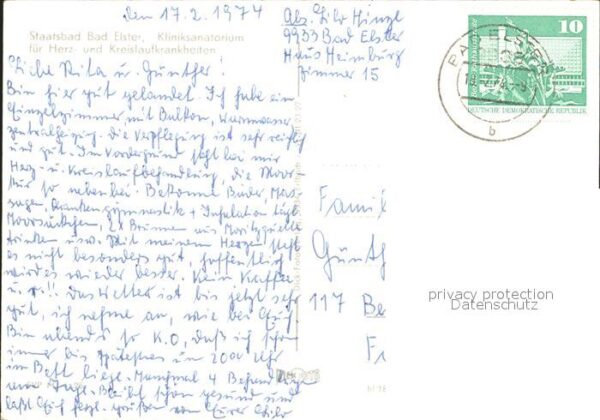 den 17.2.1974
Staatsbad Bad Elster, Kliniksanatorium
für Herz- und Kreislaufkrankheiten
Abs. Silv Hinzl
9933 Bad Elster
Haus Heimburg
Zimmer 15
10
BAD ELSTER
DEUTSCHE DEMOKRATISCHE REPUBLIK
b
Liebe Rita u. Günther!
Bin hier gut gelandet. Ich habe ein
Einzelzimmer mit Balkon, Warmwasser,
Zentralheizung. die Verpflegung ist sehr reichlich
und gut. Im Vordergrund steht bei mir
Herz- u. Kreislaufbehandlung, die Moor-
kur so nebenbei. Bekomme Bäder, Mas-
sagen, Krankengymnastik + Inhalation tägl.
Moorsäckchen, 2x Brunnen aus Moritzquelle
trinken usw. Mit meinem Herzen steht
es nicht besonders gut, hoffentlich
wird es wieder besser. Kein Kaffee
u.s.!! Das Wetter ist bis jetzt sehr
gut, ich nehme an, wie bei Euch
Bin abends so K.O, daß ich schon
immer bis spätestens um 2000 Uhr
im Bett liege. Manchmal 4 Behandlungen
am Tage. Bleibt schön gesund und
laßt Euch herzl. grüßen von Eurer
Famil
Günth
117 Be
F
privacy protection
Datenschutz